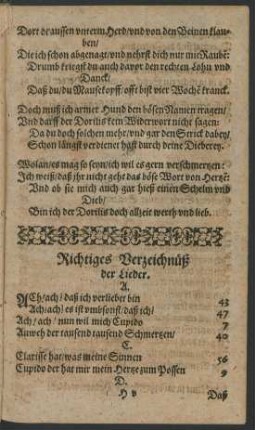 Dort draussen vnterm Herd/vnd von den Beinen klau-
ben/
Die ich schon abgenagt/vnd nehrst dich nur mit Raubē:
Drumb kriegst du auch davor den rechten Lohn vnd
Danck/
Daß du/du Mausekopff/offt bist vier Wochē kranck.
Doch muß ich armer Hund den bösen Namen tragen/
Vnd darff der Dorilis kein Widerwort nicht sagen:
Da du doch solchen mehr/vnd gar den Strick dabey/
Schon längst verdienet hast durch deine Dieberey.
Wolan/es mag so seyn/ich wil es gern verschmertzen:
Ich weiß/daß ihr nicht geht das böse Wort von Hertzē:
Vnd ob sie mich auch gar hieß einen Schelm vnd
Dieb/
Bin ich der Dorilis doch allzeit werth vnd lieb.
Richtiges Verzeichnüß
der Lieder.
A.
ACh/ach/daß ich verliebet bin 43
Ach/ach/es ist vmbsonst/daß ich/ 47
Ach/ach/nun wil mich Cupido 7
Auweh der tausend tausend Schmertzen/ 40
C.
Clarisse hat/was meine Sinnen 56
Cupido der hat mir mein Hertze zum Possen 9
D.
H v Daß